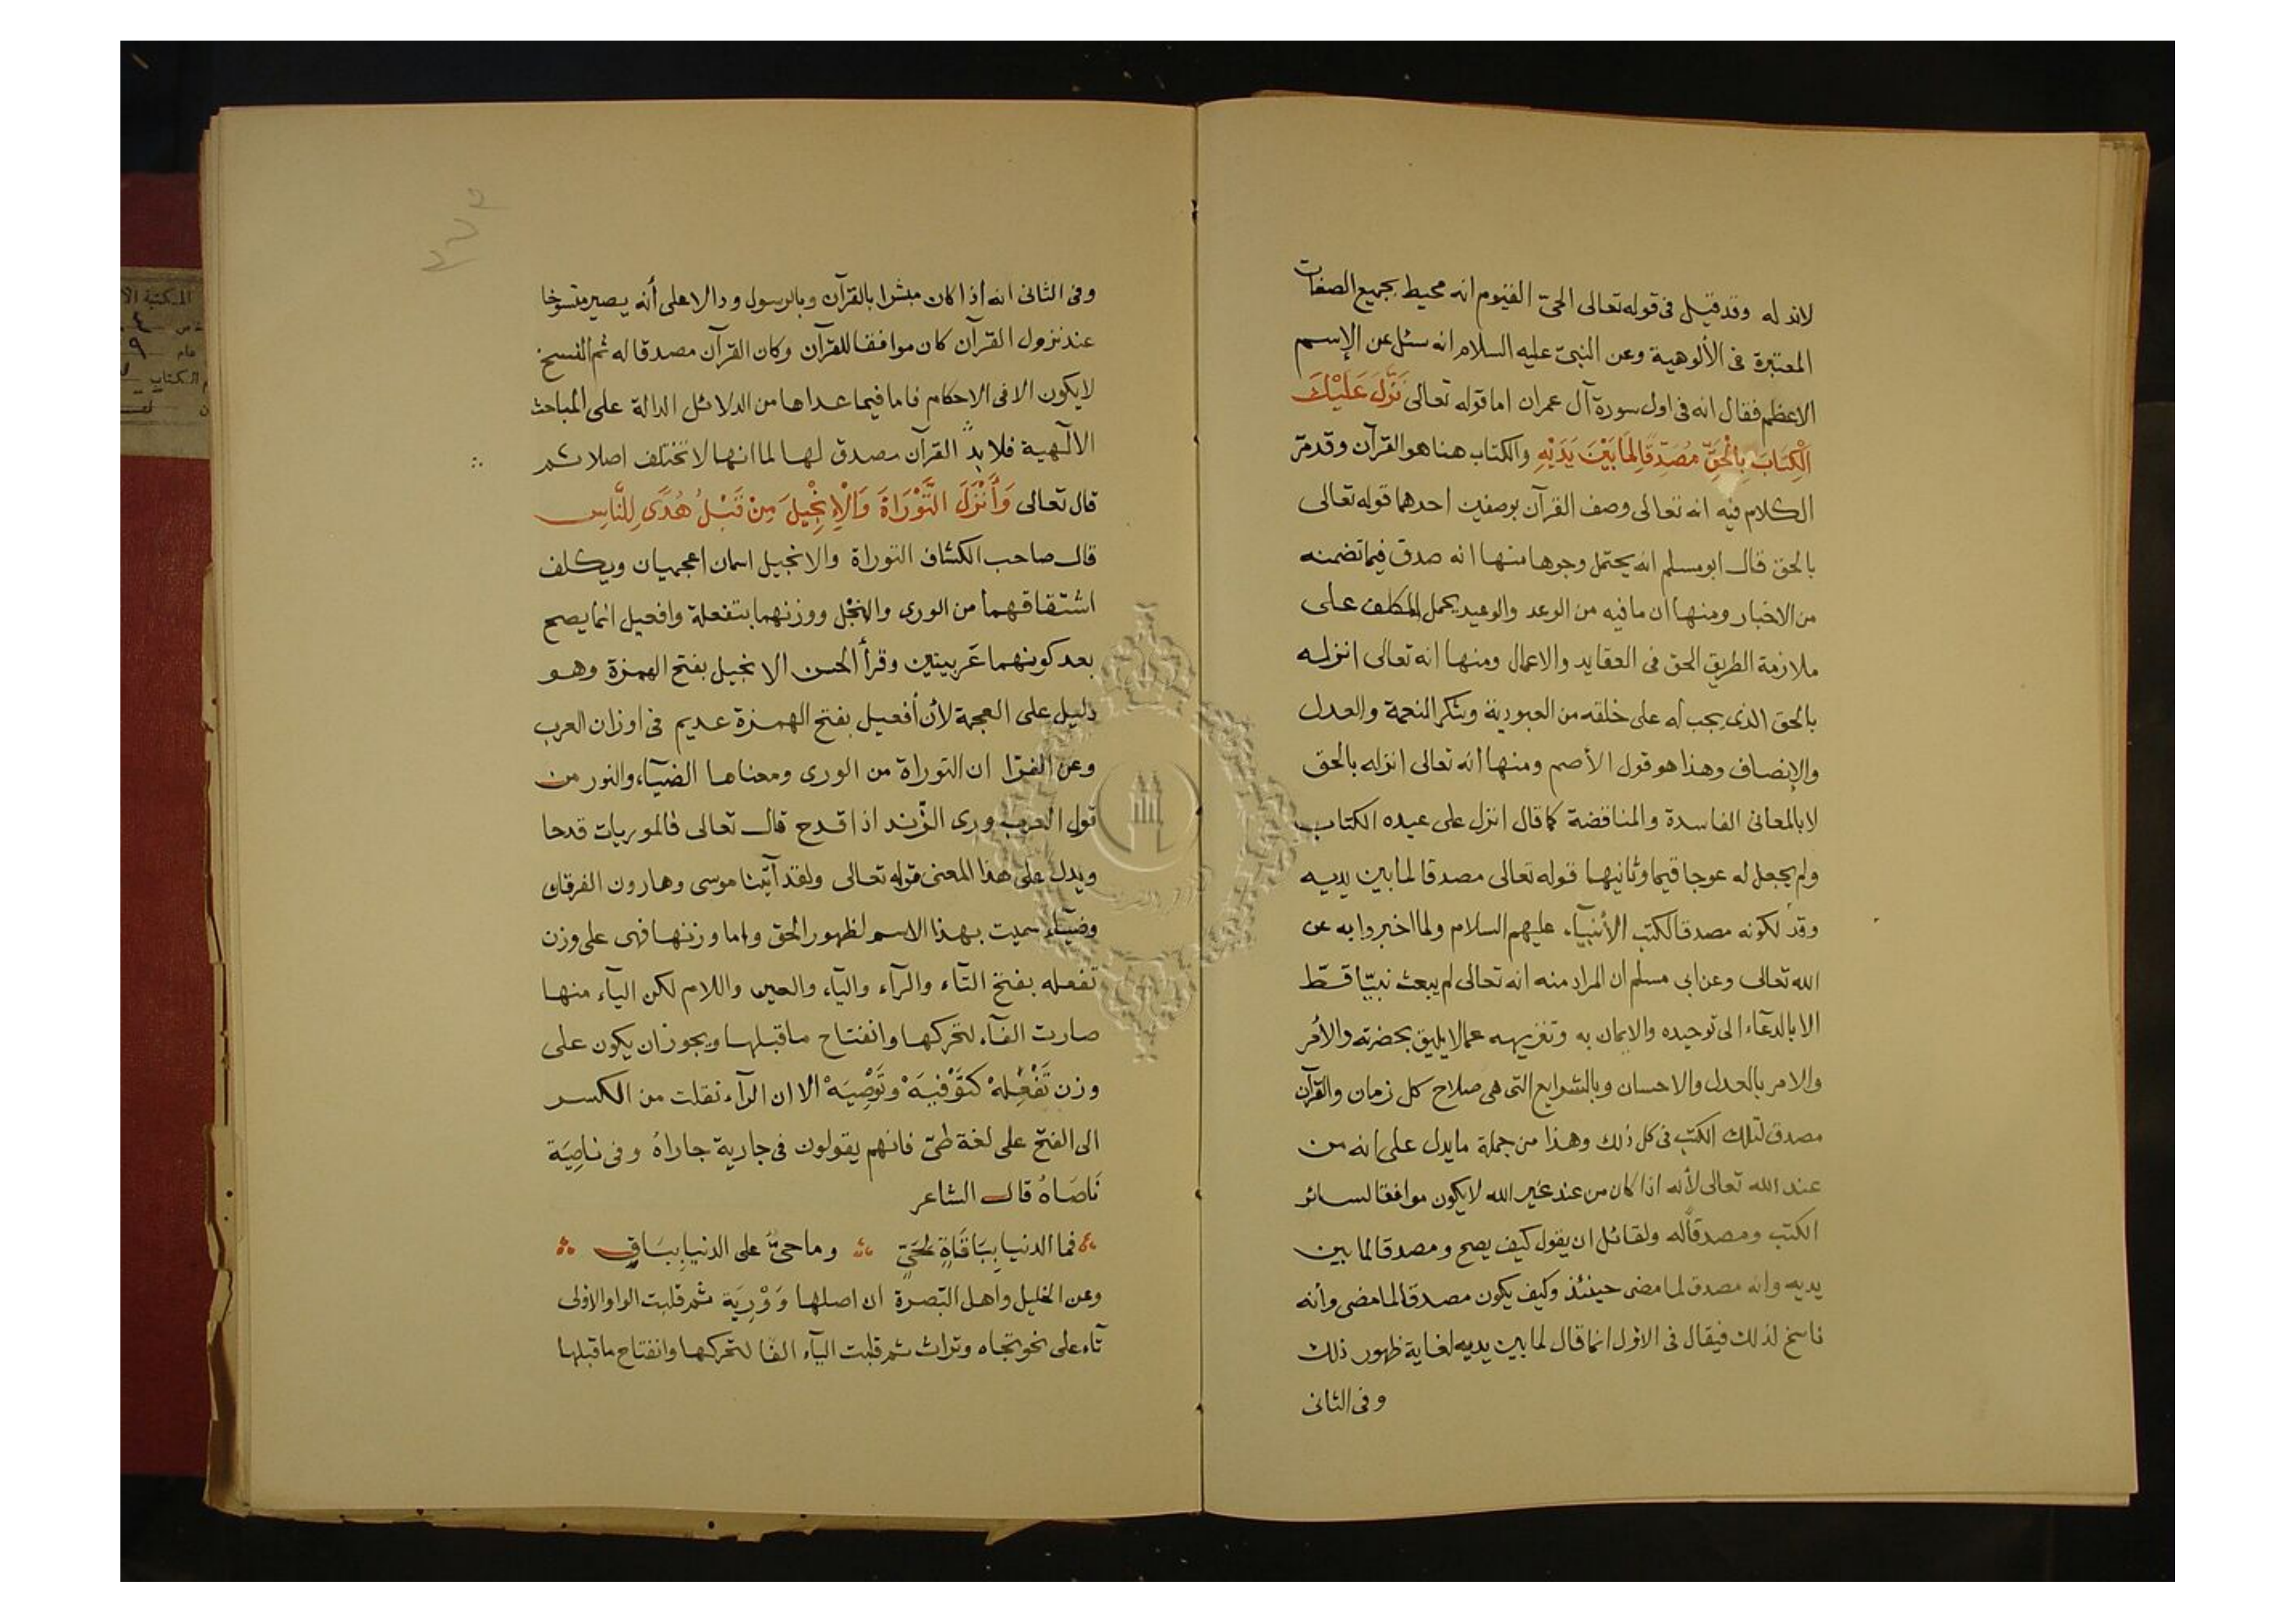 لاند له وقد قيل فى قوله تعالى الحىّ القيوم انه محيط بجميع الصفات
المعتبرة فى الألوهية وعن النبىّ عليه السلام انه سئل عن الإسم
الاعظم فقال انه فى اول سورة آل عمران اما قوله تعالى نَزَّلَ عَلَيْكَ
الْكِتَابَ بِالْحَقِّ مُصَدِّقًا لِمَا بَيْنَ يَدَيْهِ والكتاب هنا هو القرآن وقد مرّ
الكلام فيه انه تعالى وصف القرآن بوصفين احدهما قوله تعالى
بالحق قال ابو مسلم انه يحتمل وجوها منها انه صدق فيما تضمنه
من الاخبار ومنها ان ما فيه من الوعد والوعيد يحمل المكلف على
ملازمة الطريق الحق فى العقايد والاعمال ومنها انه تعالى انزله
بالحق الذى يجب له على خلقه من العبودية وشكر النعمة والعدل
والإنصاف وهذا هو قول الأصم ومنها انه تعالى انزله بالحق
لا بالمعانى الفاسدة والمناقضة كما قال انزل على عبده الكتاب
ولم يجعل له عوجا قيما وثانيها قوله تعالى مصدقا لما بين يديه
وقد لكونه مصدقا لكتب الأنبيآء عليهم السلام ولما اخبروا به عن
الله تعالى وعن ابي مسلم ان المراد منه انه تعالى لم يبعث نبيّا قطّ
الا بالدعآء الى توحيده والايمان به وتنزيهه عما لا يليق بحضرته والأمر
والامر بالعدل والاحسان وبالشرايع التى هى صلاح كل زمان والقرآن
مصدق لتلك الكتب فى كل ذلك وهذا من جملة ما يدل على انه من
عند الله تعالى لأنه اذا كان من عند غير الله لا يكون موافقا لسائر
الكتب ومصدقا له ولقائل ان يقول كيف يصح ومصدقا لما بين
يديه وانه مصدق لما مضى حينئذ وكيف يكون مصدقا لما مضى وأنه
ناسخ لذلك فيقال فى الاول انما قال لما بين يديه لغاية ظهور ذلك
وفى الثانى
وفى الثانى انه اذا كان مبشرا بالقرآن وبالرسول ودالا على أنه يصير منسوخا
عند نزول القرآن كان موافقا للقرآن وكان القرآن مصدقا له ثم النسخ
لا يكون الا فى الاحكام فاما فيما عداها من الدلائل الدالة على المباحث
الالٓهية فلا بدّ القرآن مصدق لها لما انها لا تختلف اصلا ثم
قال تعالى وَأَنْزَلَ التَّوْرَاةَ وَالْإِنْجِيلَ مِنْ قَبْلُ هُدًى لِلنَّاسِ
قال صاحب الكشاف التوراة والانجيل اسمان اعجميان ويكلف
اشتقاقهما من الورى والنجل ووزنهما بتفعلة وافعيل انما يصح
بعد كونهما عربيتين وقرأ الحسن الانجيل بفتح الهمزة وهو
دليل على العجمة لأن أفعيل بفتح الهمزة عديم فى اوزان العرب
وعن الفرّا ان التوراة من الورى ومعناها الضيآء والنور من
قول العرب ورى الزّند اذا قدح قال تعالى فالموريات قدحا
ويدل على هذا المعنى قوله تعالى ولقد آتينا موسى وهارون الفرقان
وضيآء سميت بهذا الاسم لظهور الحق واما وزنها فهى على وزن
تفعله بفتح التآء والرآء واليآء والعين واللام لكن اليآء منها
صارت الفآء لتحركها وانفتاح ما قبلها ويجوز ان يكون على
وزن تَفْعِلهْ كتَوْفِيَهْ وتَوْصِيَهْ الا ان الرآء نقلت من الكسر
الى الفتح على لغة طىّ فانهم يقولون فى جارية جاراهُ وفى ناصِيَة
نَاصَاهُ قال الشاعر
فما الدنيا بِبَاقَاةٍ لِحَيٍّ وما حىٌّ على الدنيا بِبَاقٍ
وعن الخليل واهل البَصرة ان اصلها وَوْرِيَة ثم قلبت الواو الاولى
تآء على نحو تجاه وتراث ثم قلبت اليآء الفًا لتحركها وانفتاح ما قبلها